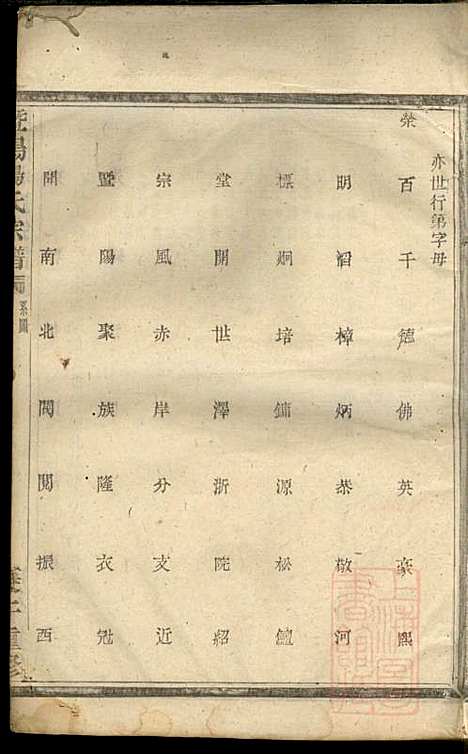 亦世行第字母
榮百千德佛英豪熙
明涓樟炳恭敬河
標炯培鏞源松鱣
堂開世澤浙院紹
宗風赤岸分支近
暨陽聚族隆衣冠
開南北閥閱振西
暨陽楊氏宗譜
系圖
重修